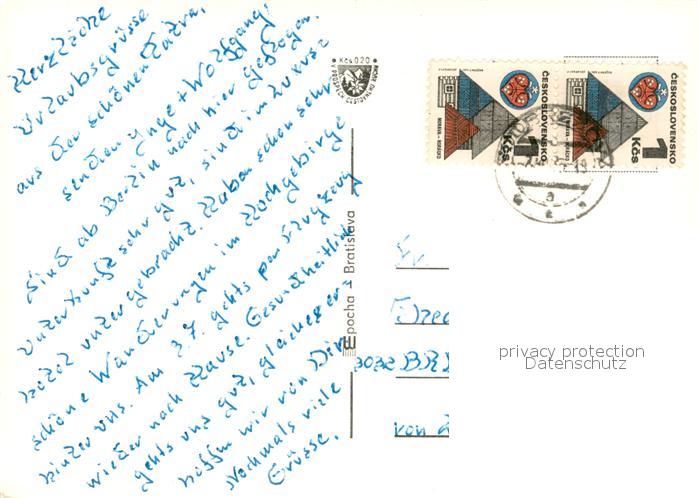 Herzliche
Urlaubsgrüsse
aus der schönen Tatra,
senden Inge + Wolfgang.
Sind ab Berlin nach hier geflogen.
Unterkunft sehr gut, sind in Luxus
hotel untergebracht. Haben schon sehr
schöne Wanderungen im Hochgebirge
hinter uns. Am 27. gehts per Flugzeug
wieder nach Hause. Gesundheitlich
gehts uns gut, gleiches
hoffen wir von Dir.
Nochmals viele
Grüsse.
Kčs 0,20
Epocha – Bratislava
ČESKOSLOVENSKO
1 Kčs
ČESKOSLOVENSKO
1 Kčs
Fr
3032 BRD
von
privacy protection
Datenschutz